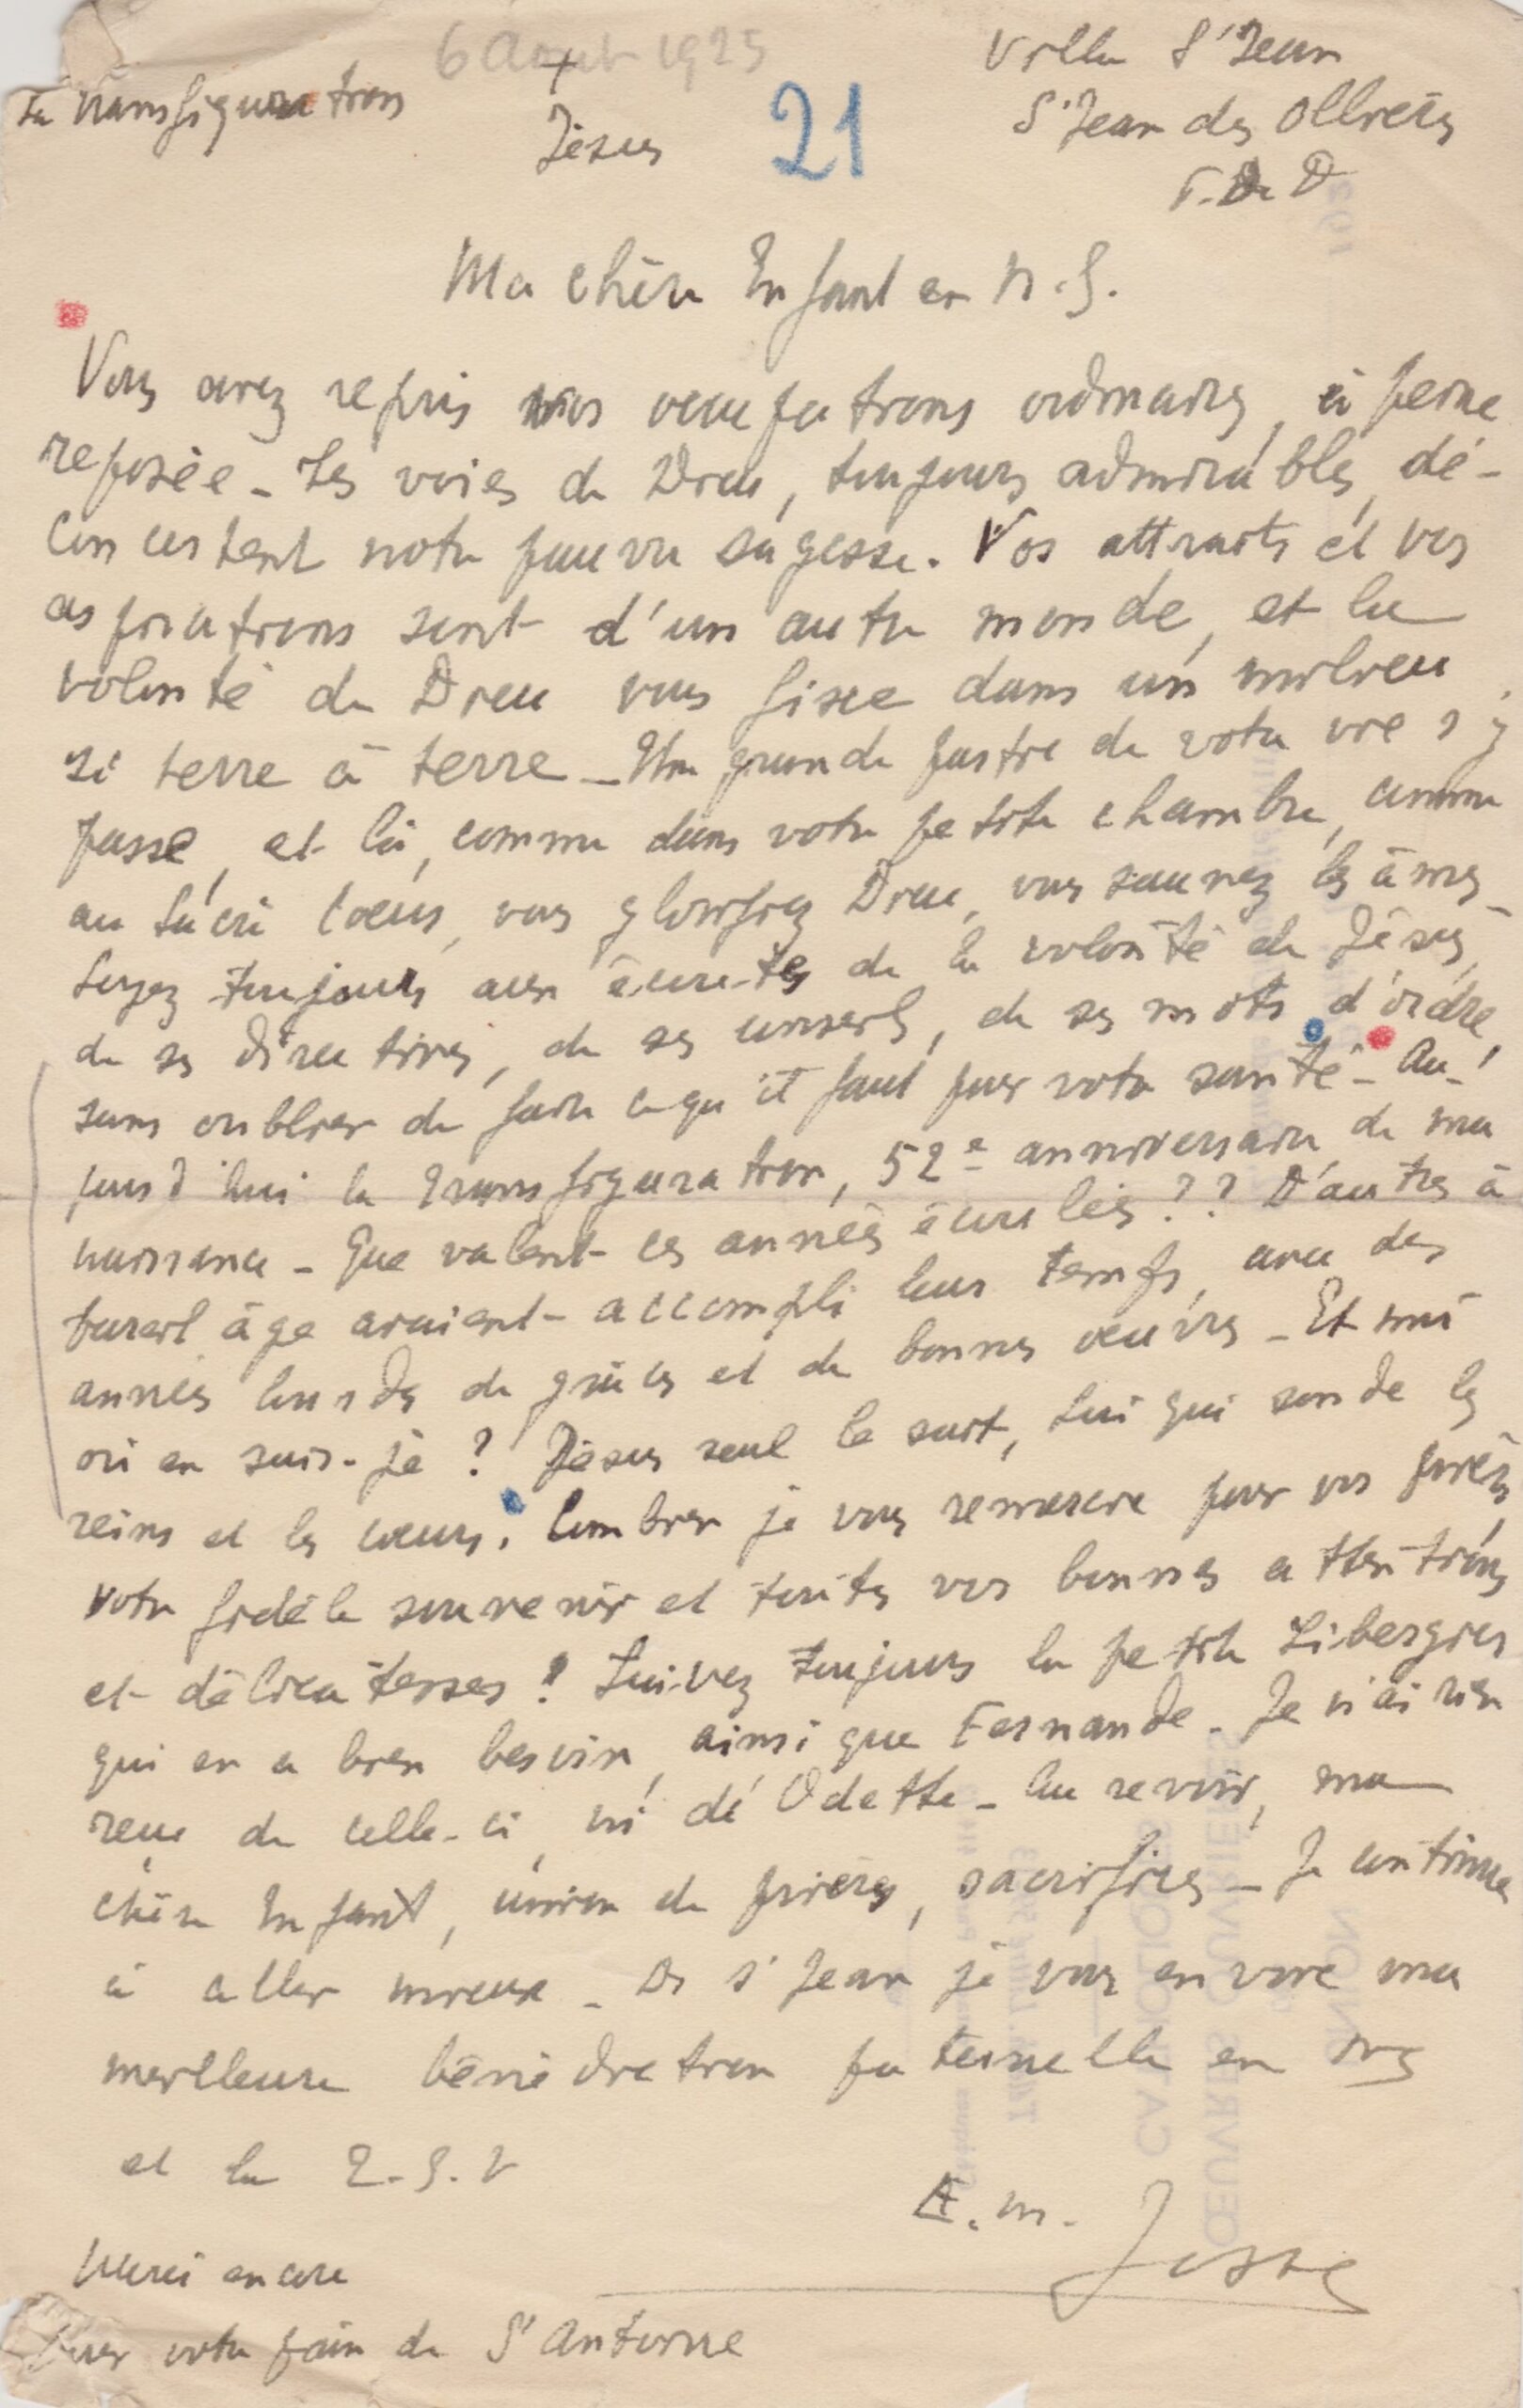 6 Aout 1925
La Transfiguration
+
Jésus
21
Villa St Jean
St Jean des Ollières
P. de D
Ma chère Enfant en N.S.
Vous avez repris vos occupations ordinaires, à peine
reposée - Les voies de Dieu, toujours admirables, dé-
concertent notre pauvre sagesse. Vos attraits et vos
aspirations sont d'un autre monde, et la
volonté de Dieu vous fixe dans un milieu
si terre à terre - Une grande partie de votre vie s'y
passe, et là, comme dans votre petite chambre, comme
au Sacré Coeur, vous glorifiez Dieu, vous sauvez les âmes -
Soyez toujours aux écoutes de la volonté de Jésus,
de ses directives, de ses conseils, de ses mots d'ordre,
sans oublier de faire ce qu'il faut pour votre santé - Au-
jourd'hui la Transfiguration, 52e anniversaire de ma
naissance - Que valent ces années écoulées ?? D'autres à
pareil âge avaient accompli leur temps, avec des
années lourdes de grâces et de bonnes oeuvres - Et moi
où en suis-je ? Jésus seul le sait, Lui qui sonde les
reins et les coeurs. Combien je vous remercie pour vos prières,
votre fidèle souvenir et toutes vos bonnes attentions
et délicatesses ! Suivez toujours la petite Libergier
qui en a bien besoin, ainsi que Fernande. Je n'ai rien
reçu de celle-ci, ni de Odette - Au revoir, ma
chère Enfant, union de prières, sacrifices - Je continue
à aller mieux - De St Jean je vous envoie ma
meilleure bénédiction paternelle en NS
et la T.S.V
E. m. Josse
Merci encore
pour votre pain de St Antoine
UNION
OEUVRES OUVRIÈRES
CATHOLIQUES